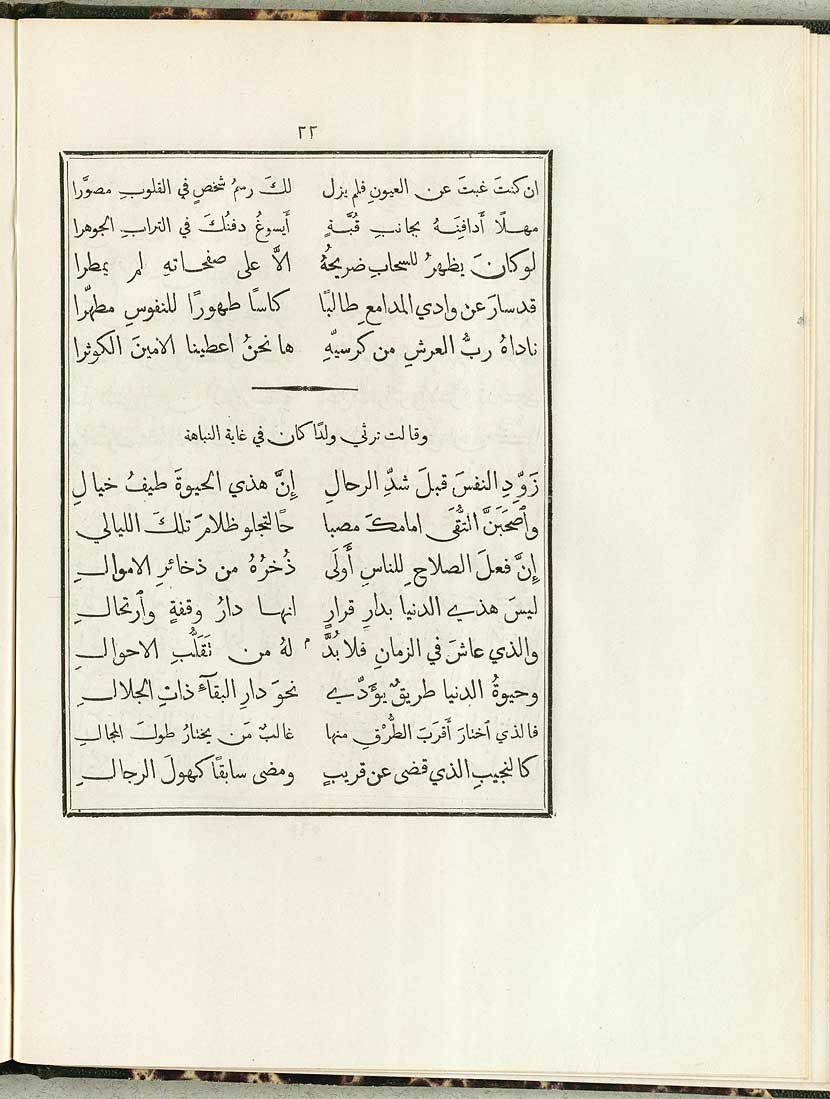 ٢٢
ان كنتَ غبتَ عن العيونِ فلم يزل لكَ رسمُ شخصٍ في القلوبِ مصوَّرا
مهلًا أَدافِنَهُ بجانبِ قُبَّةٍ أَيسوغُ دفنُكَ في الترابِ الجوهرا
لو كانَ يظهرُ للسحابِ ضريحهُ الاَّ على صفحاتهِ لم يمطرا
قد سارَ عن وادي المدامعِ طالبًا كاسًا طهورًا للنفوسِ مطهّرا
ناداهُ ربُّ العرشِ من كرسيّهِ ها نحنُ اعطينا الامينَ الكوثرا
وقالت ترثي ولدًا كان في غاية النباهة
زَوِّدِ النفسَ قبلَ شدِّ الرحالِ إِنَّ هذي الحيوةَ طيفُ خيالِ
وٱصحَبَنَّ التُّقَى امامكَ مصبا حًا لتجلو ظلامَ تلكَ الليالي
إِنَّ فعلَ الصلاحِ للناسِ أَولَى ذُخرُهُ من ذخائرِ الاموالِ
ليسَ هذي الدنيا بدارِ قرارٍ انها دارُ وقفةٍ وٱرتحالِ
والذي عاشَ في الزمانِ فلا بدَّ م لهُ من تَقَلُّبِ الاحوالِ
وحيوةُ الدنيا طريقٌ يؤَدّي نحوَ دارِ البقآءِ ذاتِ الجلالِ
فالذي ٱختارَ أَقرَبَ الطُّرْقِ منها غالبٌ مَن يختارُ طولَ المجالِ
كالنجيبِ الذي قضى عن قريبٍ ومضى سابقًا كهولَ الرجالِ